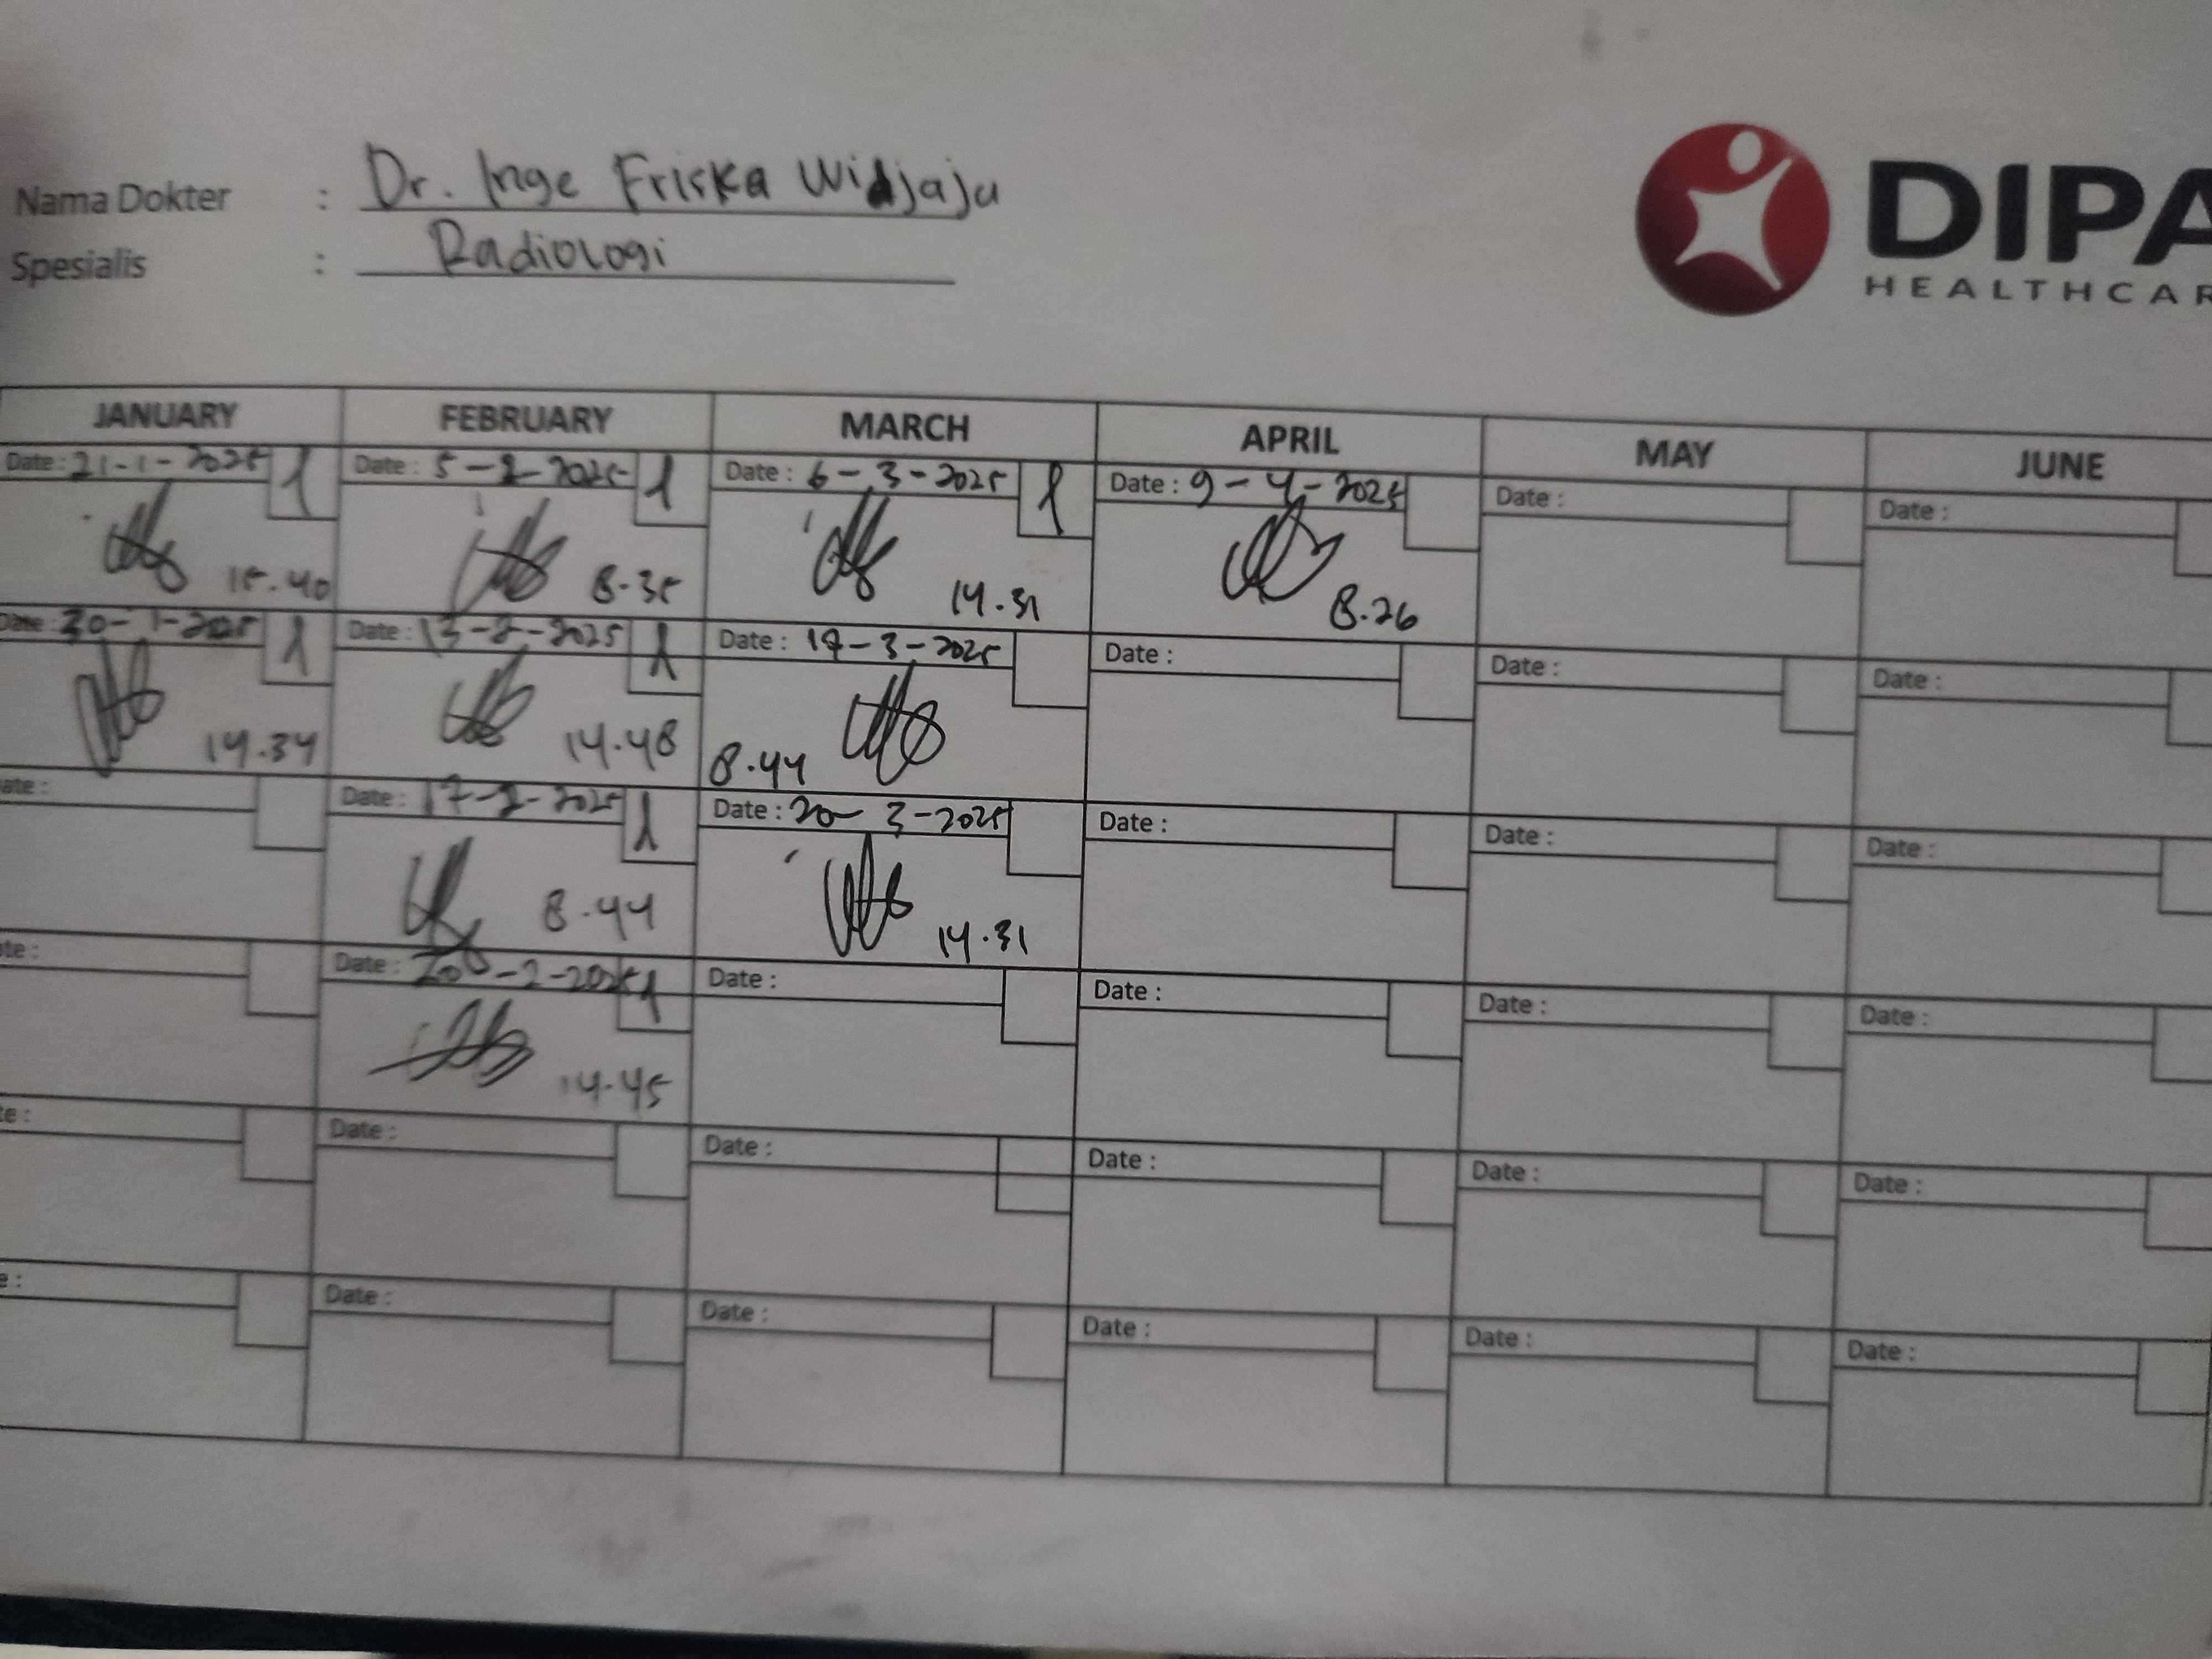 Nama Dokter : Dr. Inge Friska Widjaja
Spesialis : Radiologi
DIPA
HEALTHCAR
JANUARY FEBRUARY MARCH APRIL MAY JUNE
Date : 21-1-2025 Date : 5-2-2025 Date : 6-3-2025 Date : 9-4-2025 Date : Date :
15.40 8.35 14.31 8.26
Date : 30-1-2025 Date : 13-2-2025 Date : -3-2025 Date : Date : Date :
14.34 14.48 8.44
ate : Date : 17-2-2025 Date : 20-3-2025 Date : Date : Date :
8.44 14.31
te : Date : -2-2025 Date : Date : Date : Date :
14.45
te : Date : Date : Date : Date : Date :
e : Date : Date : Date : Date : Date :